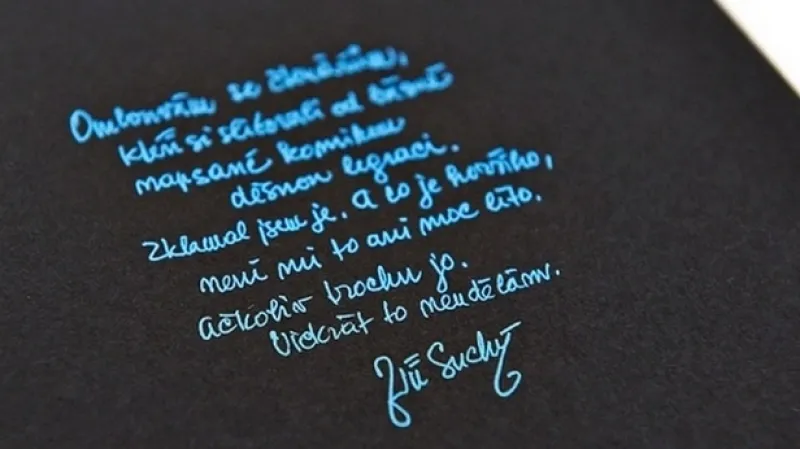 Omlouvám se čtenářům,
kteří si slibovali od básně
napsané komikem
děsnou legraci.
Zklamal jsem je. A co je horšího,
není mi to ani moc líto.
Ačkoliv trochu jo.
Vickrát to neudělám.
Jiří Suchý